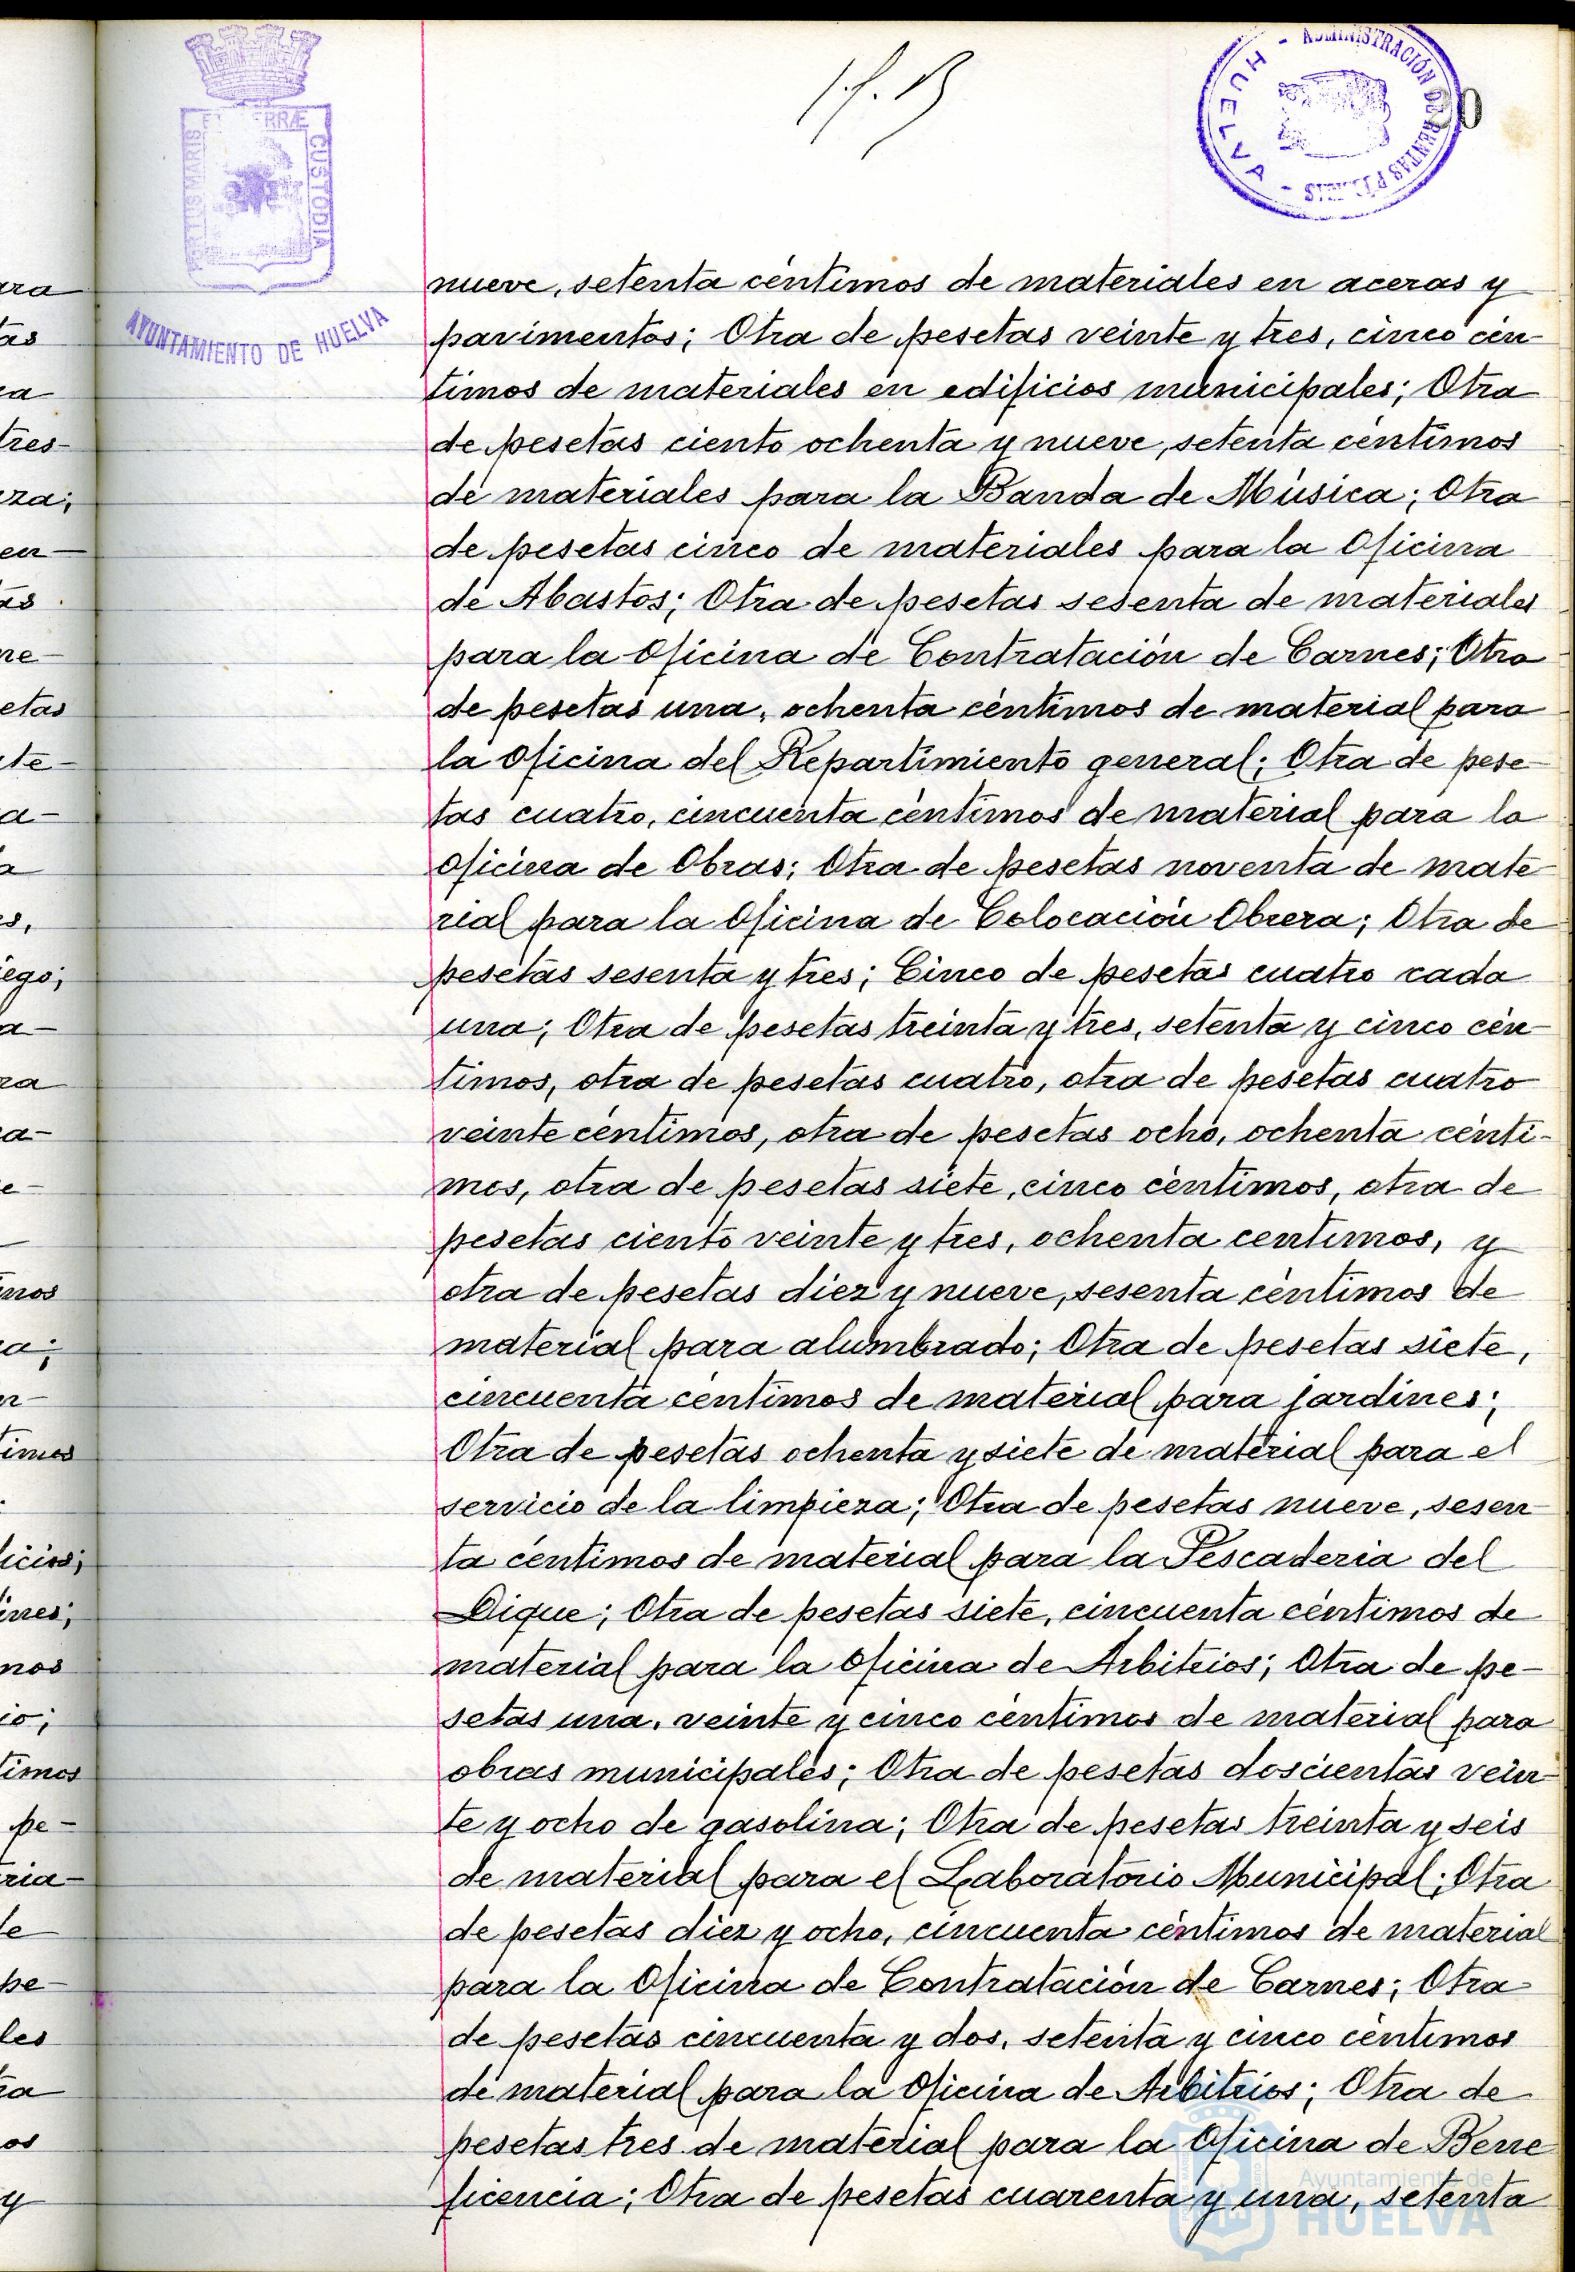 PORTUS MARIS ET TERRÆ CUSTODIA
AYUNTAMIENTO DE HUELVA
- ADMINISTRACIÓN DE RENTAS PÚBLICAS - HUELVA
nueve, setenta céntimos de materiales en aceras y
pavimentos; Otra de pesetas veinte y tres, cinco cén-
timos de materiales en edificios municipales; Otra
de pesetas ciento ochenta y nueve, setenta céntimos
de materiales para la Banda de Música; Otra
de pesetas cinco de materiales para la Oficina
de Abastos; Otra de pesetas sesenta de materiales
para la Oficina de Contratación de Carnes; Otra
de pesetas una, ochenta céntimos de material para
la Oficina del Repartimiento general; Otra de pese-
tas cuatro, cincuenta céntimos de material para la
Oficina de Obras; Otra de pesetas noventa de mate-
rial para la Oficina de Colocación Obrera; Otra de
pesetas sesenta y tres; Cinco de pesetas cuatro cada
una; Otra de pesetas treinta y tres, setenta y cinco cén-
timos, otra de pesetas cuatro, otra de pesetas cuatro
veinte céntimos, otra de pesetas ocho, ochenta cénti-
mos, otra de pesetas siete, cinco céntimos, otra de
pesetas ciento veinte y tres, ochenta centimos, y
otra de pesetas diez y nueve, sesenta céntimos de
material para alumbrado; Otra de pesetas siete,
cincuenta centimos de material para jardines;
Otra de pesetas ochenta y siete de material para el
servicio de la limpieza; Otra de pesetas nueve, sesen-
ta céntimos de material para la Pescaderia del
Dique; Otra de pesetas siete, cincuenta céntimos de
material para la Oficina de Arbitrios; Otra de pe-
setas una, veinte y cinco céntimos de material para
obras municipales; Otra de pesetas doscientas vein-
te y ocho de gasolina; Otra de pesetas treinta y seis
de material para el Laboratorio Municipal; Otra
de pesetas diez y ocho, cincuenta céntimos de material
para la Oficina de Contratación de Carnes; Otra
de pesetas cincuenta y dos, setenta y cinco céntimos
de material para la Oficina de Arbitrios; Otra de
pesetas tres de material para la Oficina de Bene
ficencia; Otra de pesetas cuarenta y una, setenta
Ayuntamiento de
HUELVA